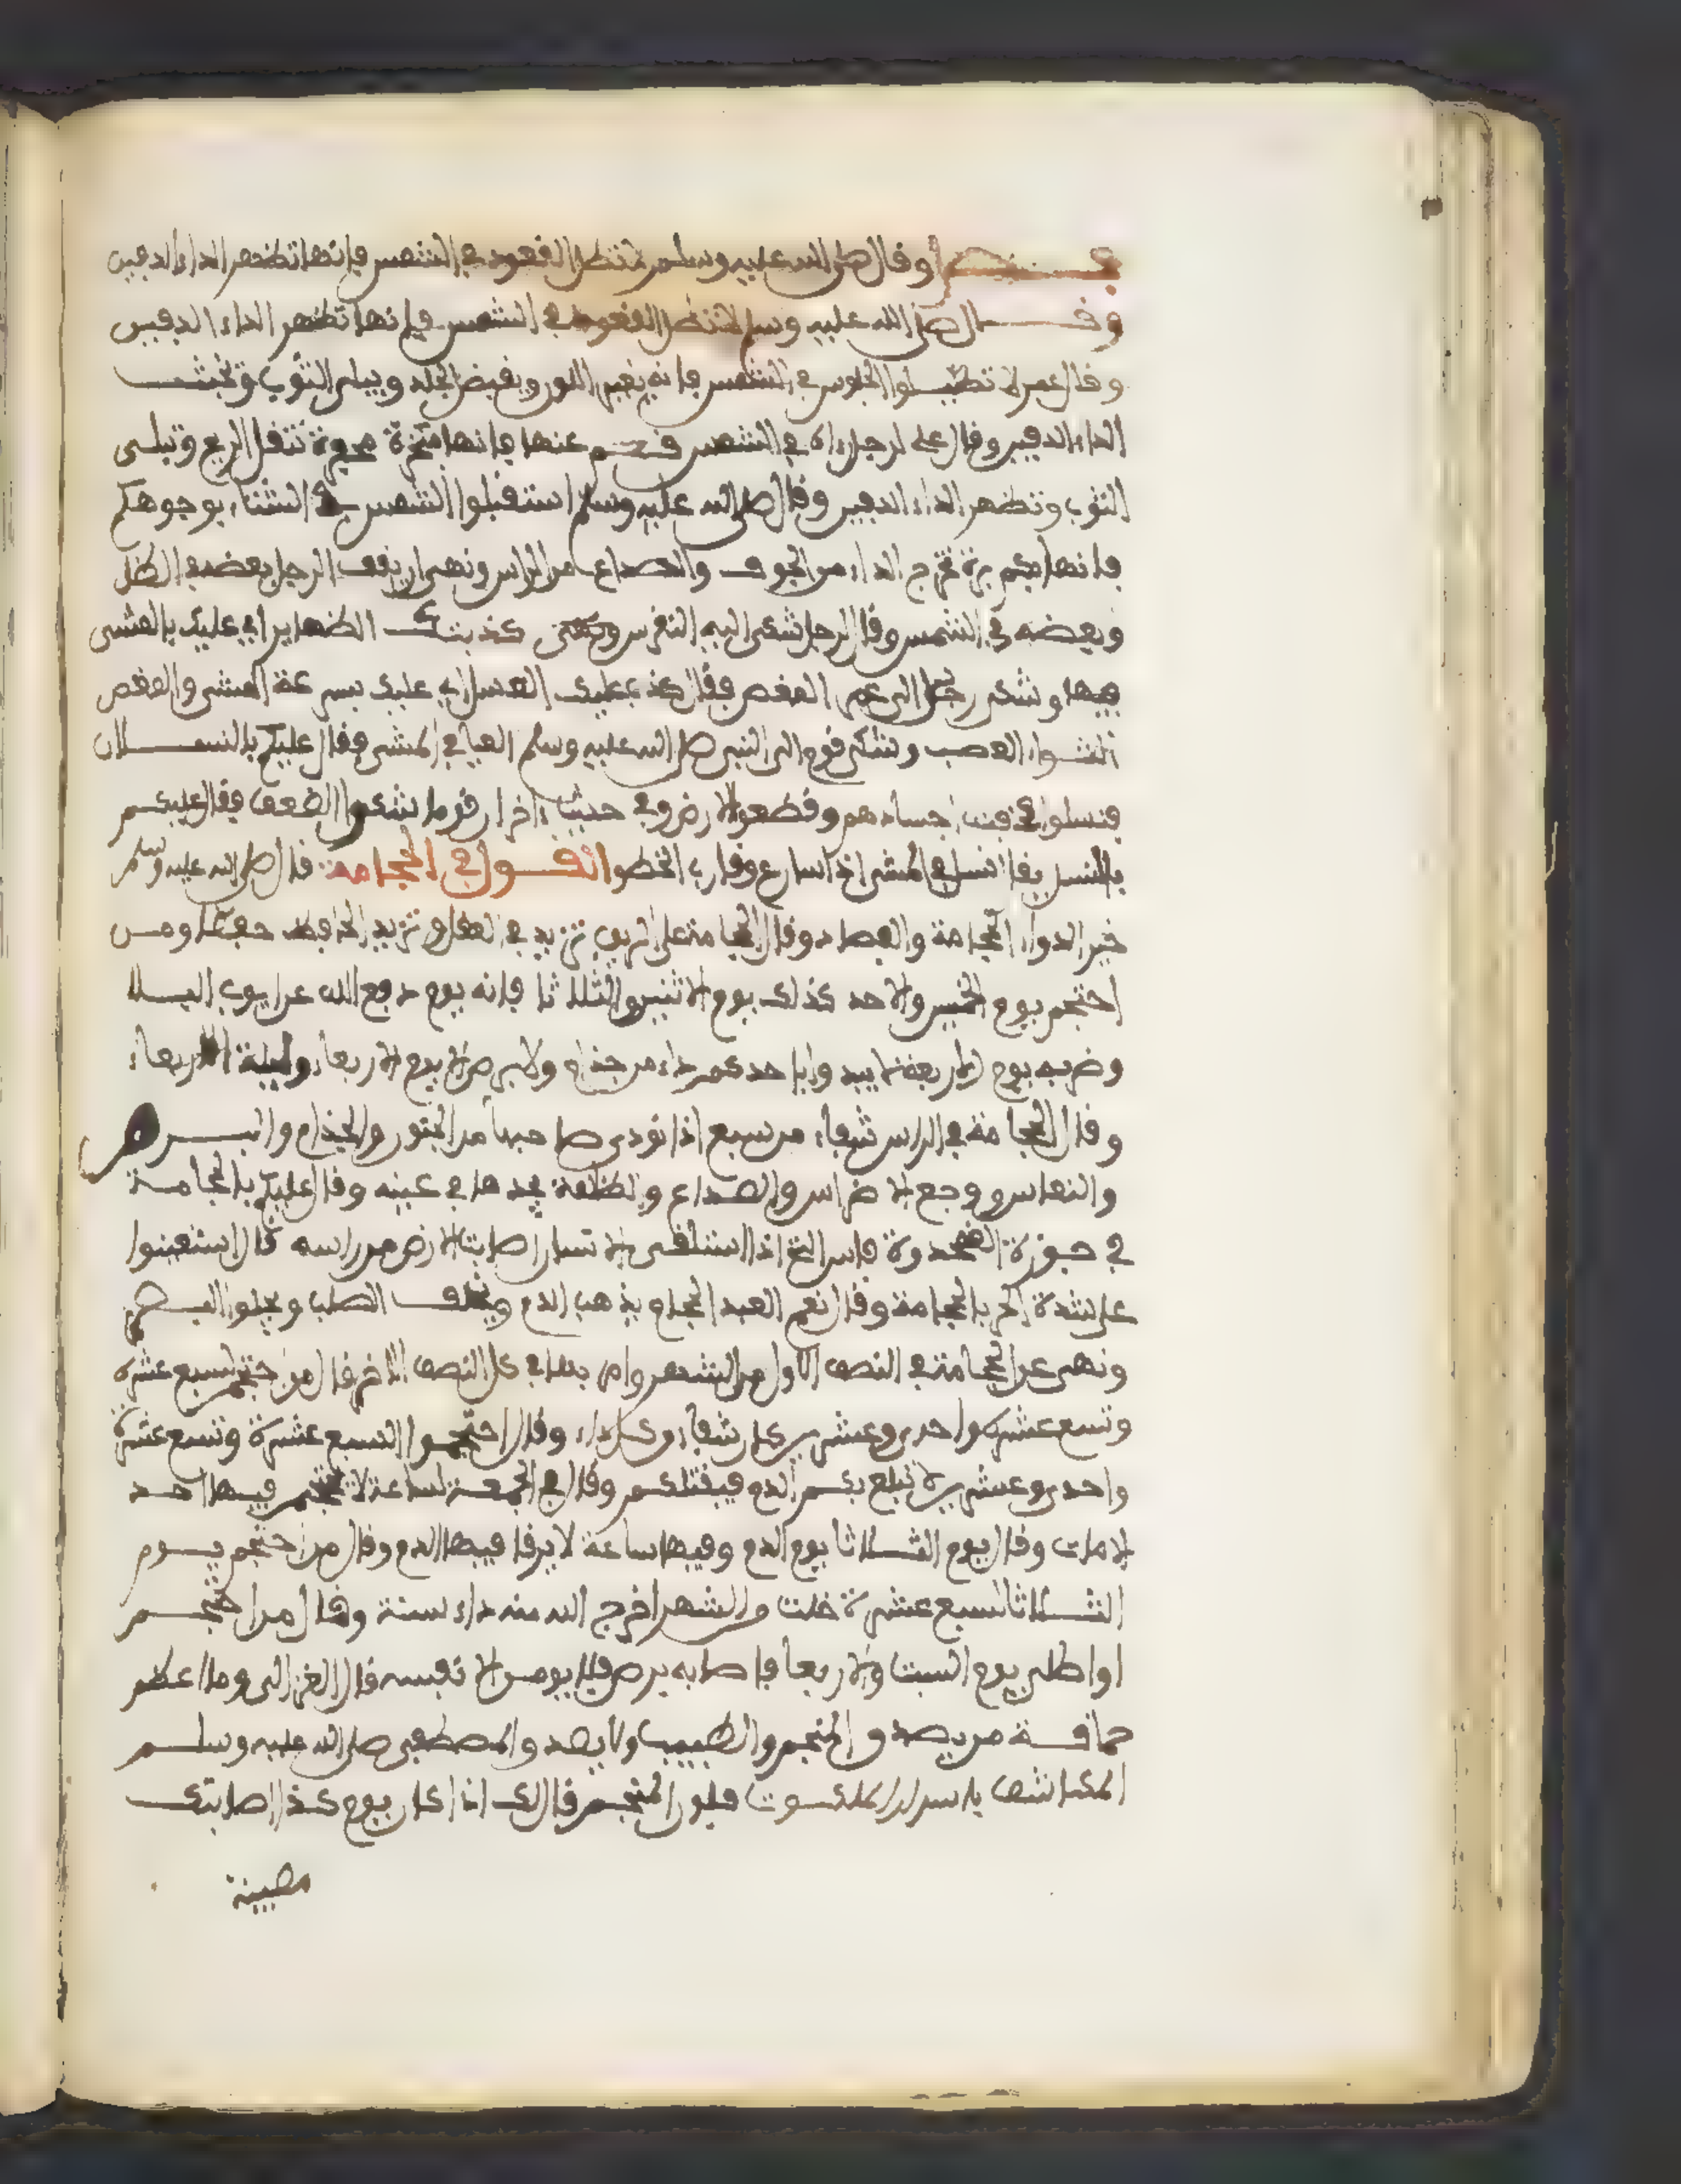 وقال صلى الله عليه وسلم لا تطل القعود في الشمس فإنها تظهر الداء الدفين
وقال صلى الله عليه وسلم لا تطل القعود في الشمس فإنها تظهر الداء الدفين
وقال عمر لا تطيلوا الجلوس في الشمس فإنه يغير اللون ويقبض الجلد ويبلي الثوب ويبحث
الداء الدفين وقال علي لرجل رءاه في الشمس قم عنها فإنها مبخرة مجفرة تتفل الريح وتبلى
الثوب وتظهر الداء الدفين وقال صلى الله عليه وسلم استقبلوا الشمس في الشتاء بوجوهكم
فإنها تخرج الداء من الجوف والصداع من الراس ونهى ان يقف الرجل بعضه في الظل
وبعضه في الشمس وقال لرجل شكى اليه النقرس كذبتك الظهاير اي عليك بالمشى
فيها وشكى رجل الى عمر المغص فقال كذب عليك العسل اي عليك بسرعة المشى والمغص
التواء العصب وشكى قوم الى النبي صلى الله عليه وسلم العيا في المشي فقال عليكم بالنسلان
فنسلوا اجسادهم وقطعوا الارض وفي حديث ءاخر ان قوما شكوا الضعف فقال عليكم
بالنسل يقال نسل في المشي اذا سارع وقارب الخطو القول في الحجامة قال صلى الله عليه وسلم
خير الدواء الحجامة والفصاد وقال الحجامة على الريق تزيد في العقل وتزيد الحافظ حفظا ومن
احتجم يوم الخميس والاحد كذلك يوم الاثنين والثلاثا فإنه يوم دفع الله عن ايوب البلا
وضربه يوم الاربعة من جذام ولا برص الا يوم الاربعاء وليلة الاربعاء
وقال الحجامة في الراس شفاء من سبع اذا نوى صاحبها من الجنون والجذام والبرص
والنعاس ووجع الاضراس والصداع والظلمة يجدها في عينه وقال عليكم بالحجامة
في جوزة القمحدوة اذا استلقى الانسان اصابت الارض من راسه قال استعينوا
على شدة الحر بالحجامة وقال نعم العبد الحجام يذهب الدم ويخفف الصلب ويجلو البصر
ونهى عن الحجامة في النصف الاول من الشهر وامر بها في كل النصف الاخر قال من احتجم لسبع عشرة
وتسع عشرة واحدى وعشرين كان شفاء من كل داء وقال احتجموا لسبع عشرة وتسع عشرة
واحدى وعشرين لا تبلغ بكم الدم فيقتلكم وقال في الجمعة لساعة لا يحتجم فيها احد
الا مات وقال يوم الثلاثا يوم الدم وفيها ساعة لا يرقا فيها الدم وقال من احتجم يوم
الثلاثا لسبع عشرة خلت من الشهر اخرج الله منه داء سنة وقال من احتجم
او اطلى يوم السبت والاربعا فاصابه برص فلا يلومن الا نفسه قال الغزالي وما اعظم
حماقة من يصدق المنجم والطبيب ولا يصدق المصطفى صلى الله عليه وسلم
المكاشف باسرار الملكوت فلو ان المنجم قال لك اذا كان يوم كذا اصابتك
مصيبة